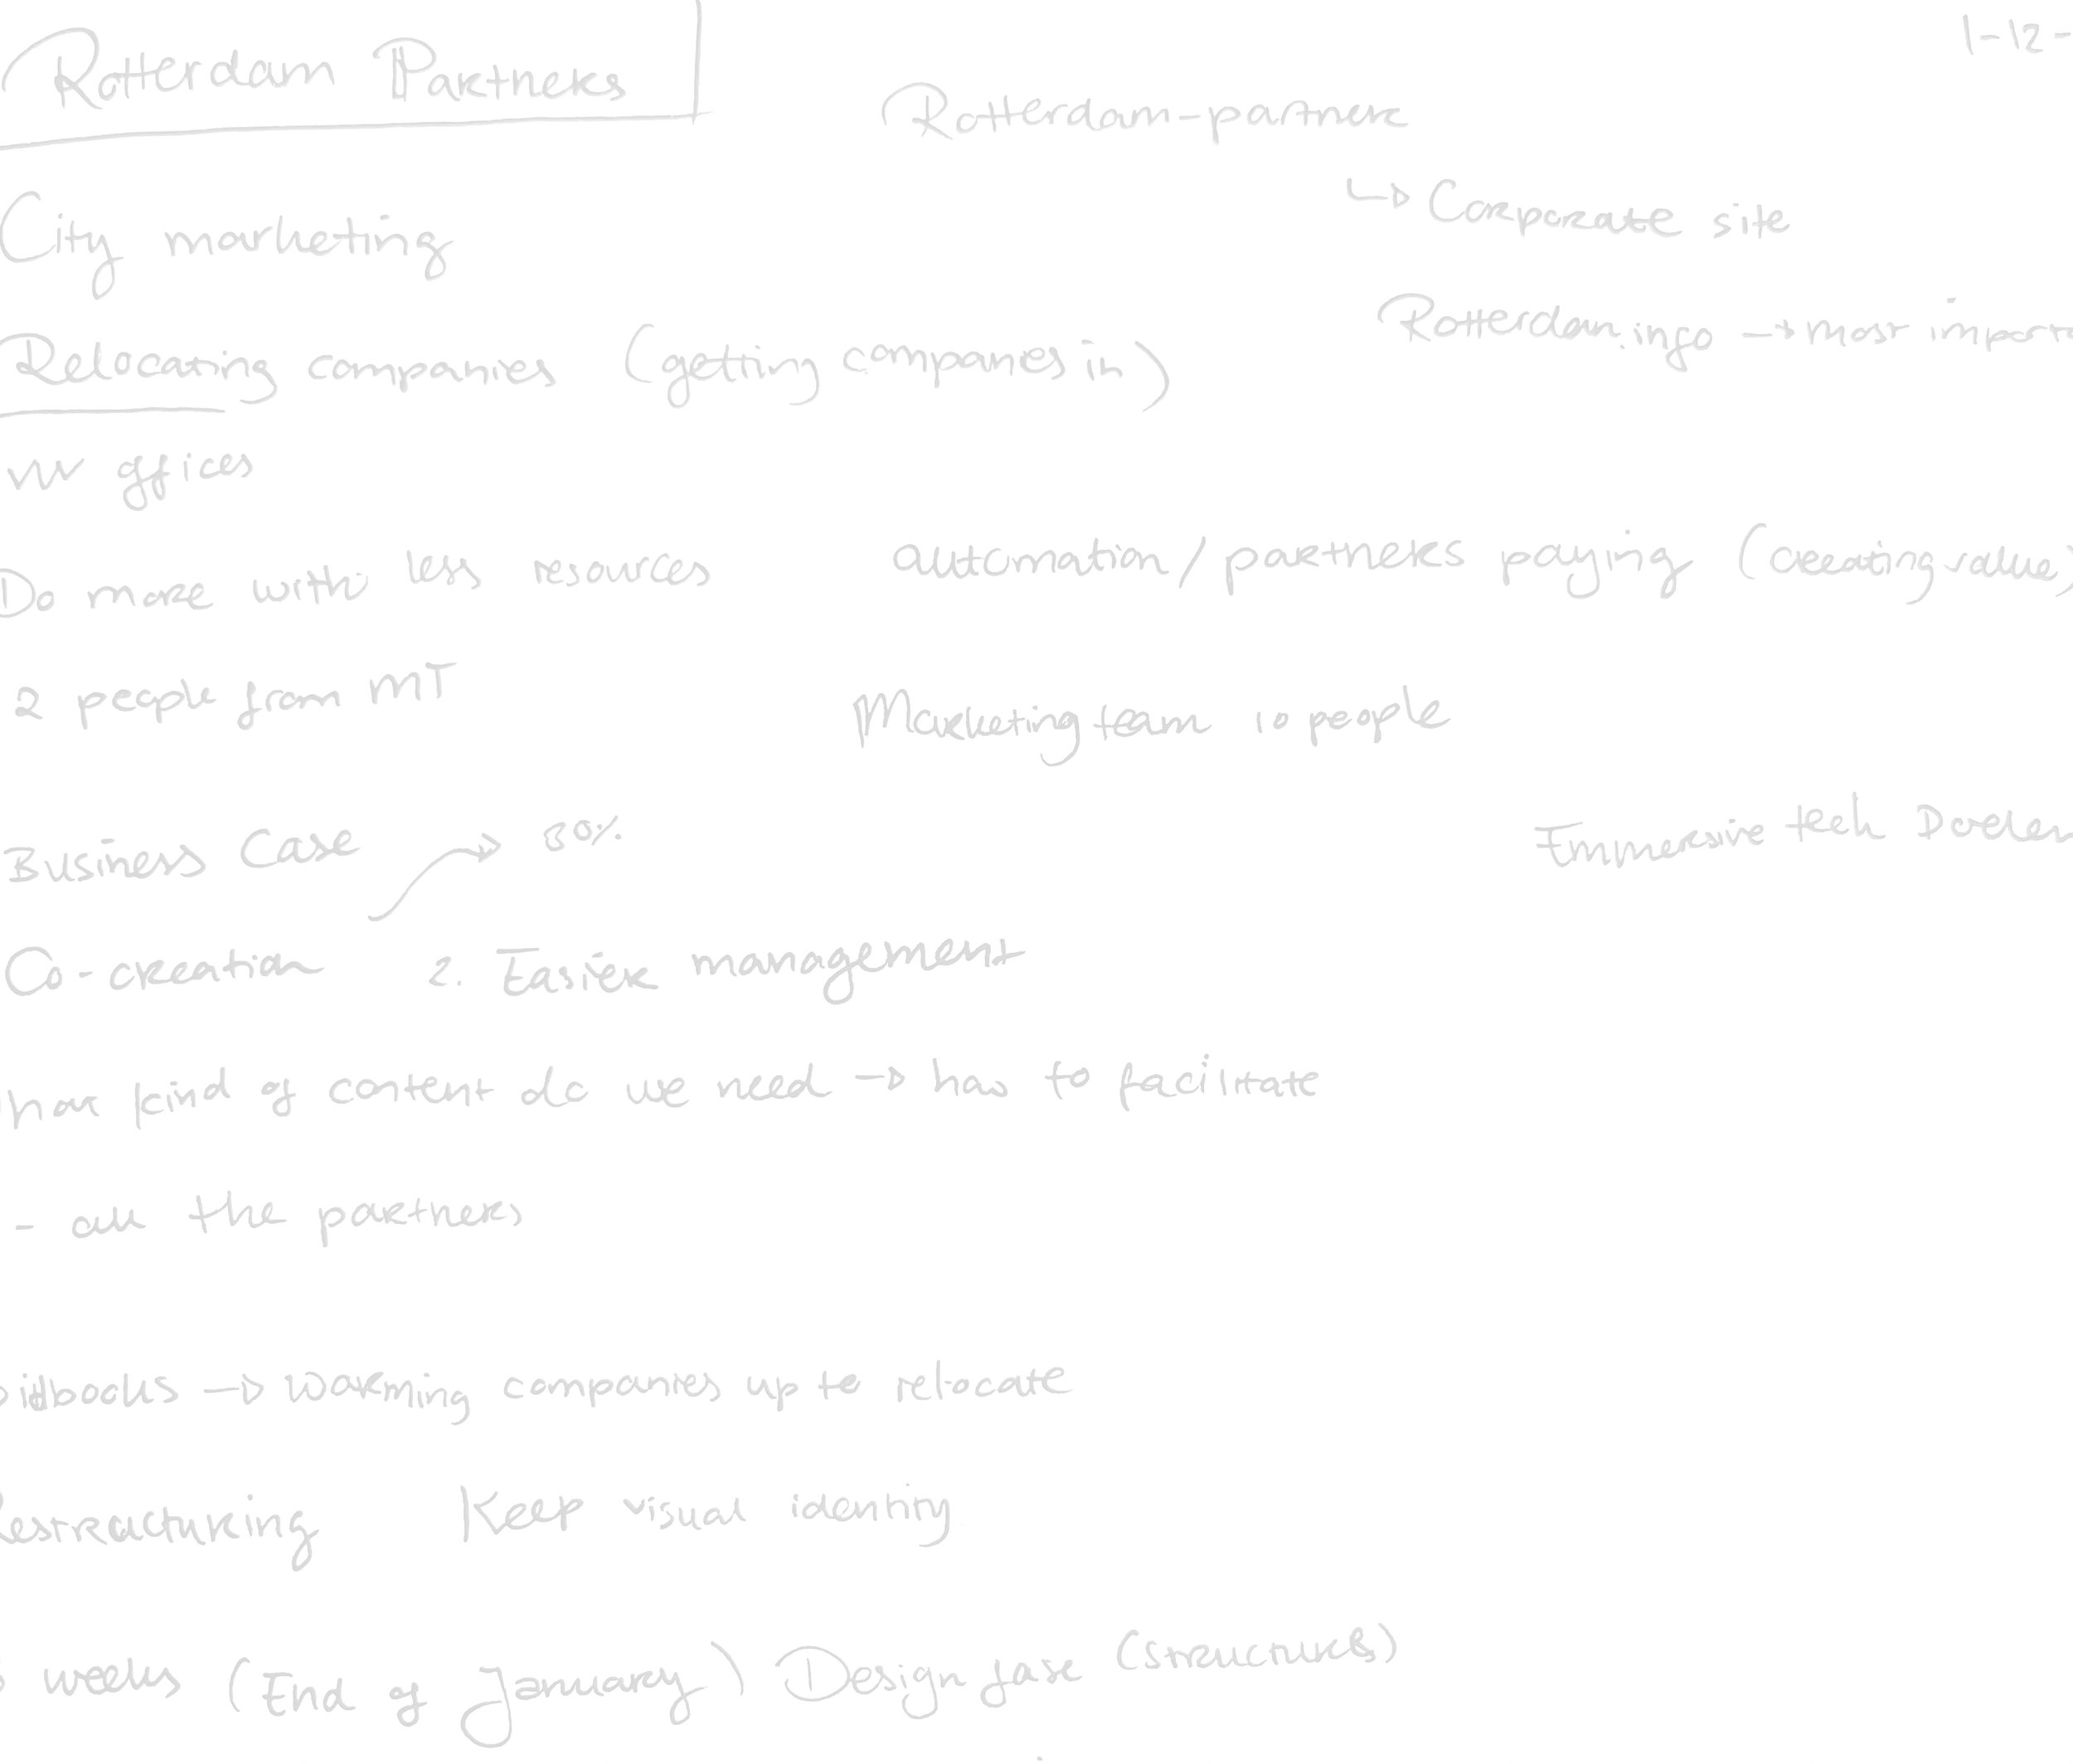 Rotterdam Partners
1-12-
Rotterdam-partners
↳ Corporate site
City marketing
Rotterdam.info → most impact
Relocating companies (getting companies in)
VVV offices
Do more with less resources
automation / partners paying (creating value)
2 people from MT
Marketing team 10 people
Business Case → 80%
Immersive tech
Co-creation 2. Easier management
kind of content do we need → has to facilitate
- all the partners
Bidbooks → warming companies up to relocate
Restructuring Keep visual identity
weeks (End of January) Design fase (structures)